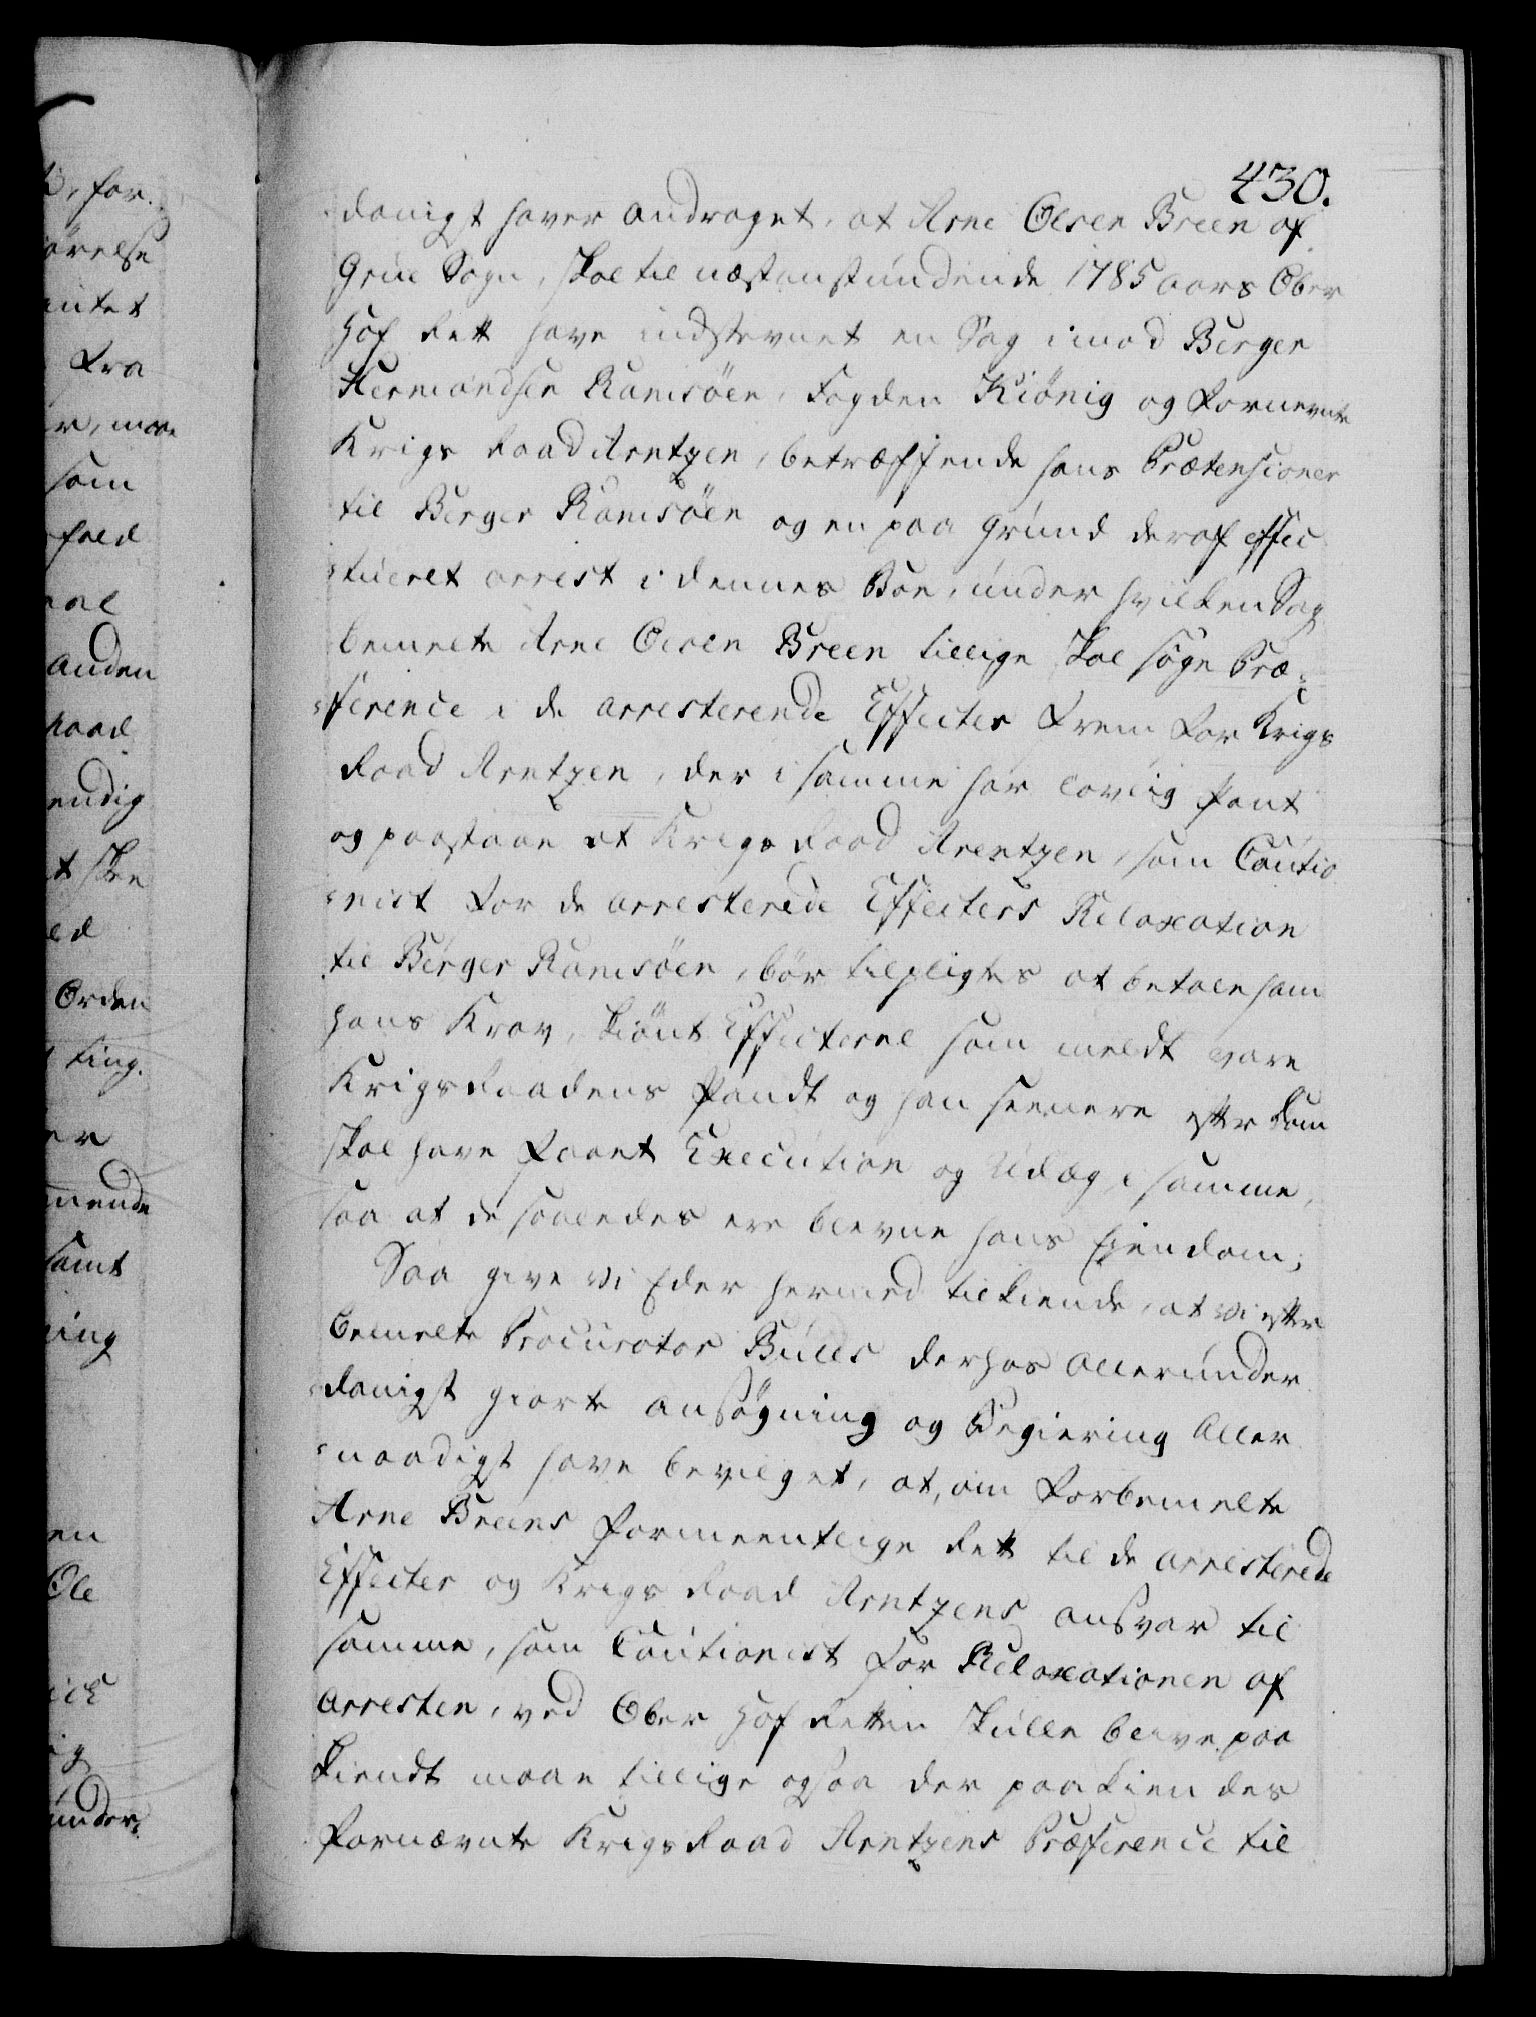 430.
danigst haver andraget, at Arne Olsen Breen af
Grue Sogn, skal til næstanstundende 1785 aars Ober
Hof Rett have indstevnet en Sag imod Berger
Hermandsen Ramsöen, Fogden Kiönig og fornevnte
Krigs Raad Arntzen, betræffende hans Prætensioner
til Berger Ramsöen og en paa Grund deraf effec
tueret arrest i dennes Boe, under hvilken Sag
bemelte Arne Olsen Breen tillige skal söge Præ-
ference i de arresterende Effecter frem for Krigs
Raad Arntzen, der i samme har lovlig Pant
og paastaae at Krigs Raad Arentzen, som Cautio
nist for de arresterede Effecters Relaxation
til Berger Ramsöen, bör tilpligtes at betale ham
hans Krav, skiönt Effecterne som meldt vare
Krigs Raadens Pandt og han seenere efter Dom
skal have faaet Execution og Udlæg i samme,
saa at de saaledes ere blevne hans Eiendom;
Saa give vi Eder hermed tilkiende, at vi efter
bemelte Procurator Bulls derhos allerunder
danigst giorte ansögning og Begiering Aller
naadigst have bevilget, at, om forbemelte
Arne Breens formeentlige Rett til de arresterede
Effecter og Krigs Raad Arntzens ansvar til
samme, som Cautionist for Relaxationen af
arresten, ved Ober Hof Retten skulle blive paa
kiendt maae tillige ogsaa der paakiendes
fornævnte Krigs Raad Arntzens Præference til